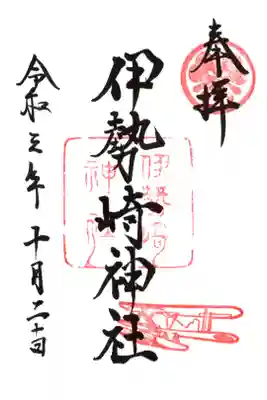 奉拝
伊勢崎神社
令和元年十月二十日
伊勢崎
神社